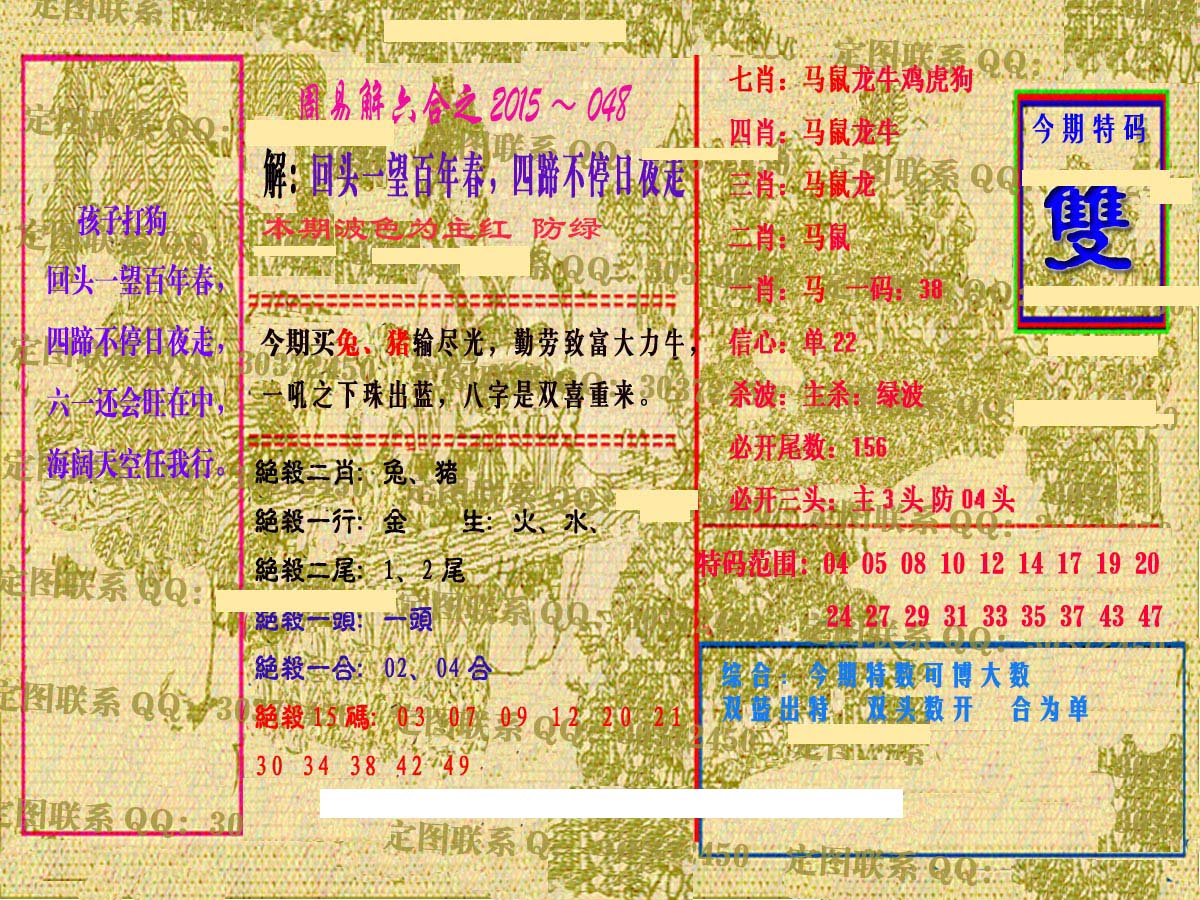 周易解六合之 2015～048
孩子打狗
回头一望百年春，
四蹄不停日夜走，
六一还会旺在中，
海阔天空任我行。
解：回头一望百年春，四蹄不停日夜走
本期波色为主红 防绿
今期买兔、猪输尽光，勤劳致富大力牛，
一吼之下珠出蓝，八字是双喜重来。
絕殺二肖：兔、豬
絕殺一行：金 生：火、水、
絕殺二尾：1、2尾
絕殺一頭：一頭
絕殺一合：02、04合
絕殺15碼：03 07 09 12 20 21
30 34 38 42 49
七肖：马鼠龙牛鸡虎狗
四肖：马鼠龙牛
三肖：马鼠龙
二肖：马鼠
一肖：马 一码：38
信心：单22
杀波：主杀：绿波
必开尾数：156
必开三头：主3头防04头
今期特码
雙
特码范围：04 05 08 10 12 14 17 19 20
24 27 29 31 33 35 37 43 47
综合：今期特数可博大数
双蓝出特 双头数开 合为单
定图联系 QQ：